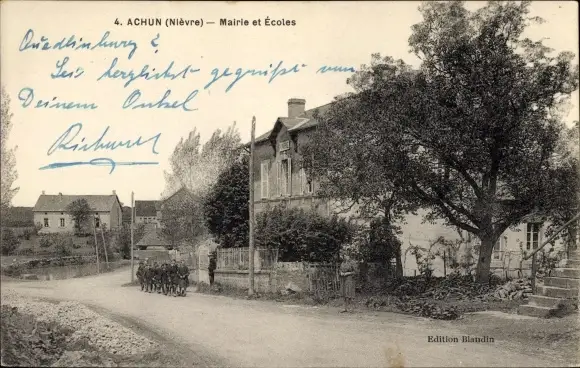 4. ACHUN (Nièvre) — Mairie et Écoles
Quedlinburg ?
Sei herzlichst gegrüßt von
Deinem Onkel
Richard
Edition Blandin